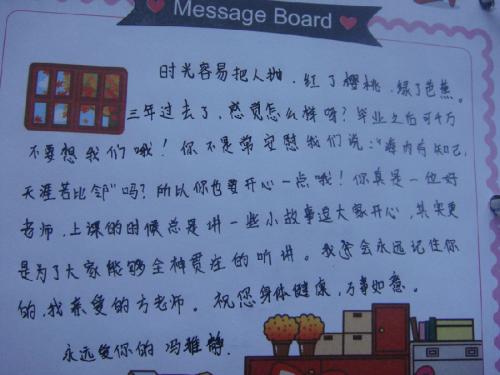 Message Board
时光容易把人抛，红了樱桃，绿了芭蕉。
三年过去了，感觉怎么样呀？毕业之后可千万
不要想我们哦！你不是常安慰我们说："海内存知己，
天涯若比邻"吗？所以你也要开心一点哦！你真是一位好
老师，上课的时候总是讲一些小故事逗大家开心，其实更
是为了大家能够全神贯注的听讲。我会永远记住你
的，我亲爱的方老师。祝您身体健康，万事如意。
永远爱你的 冯雅静.